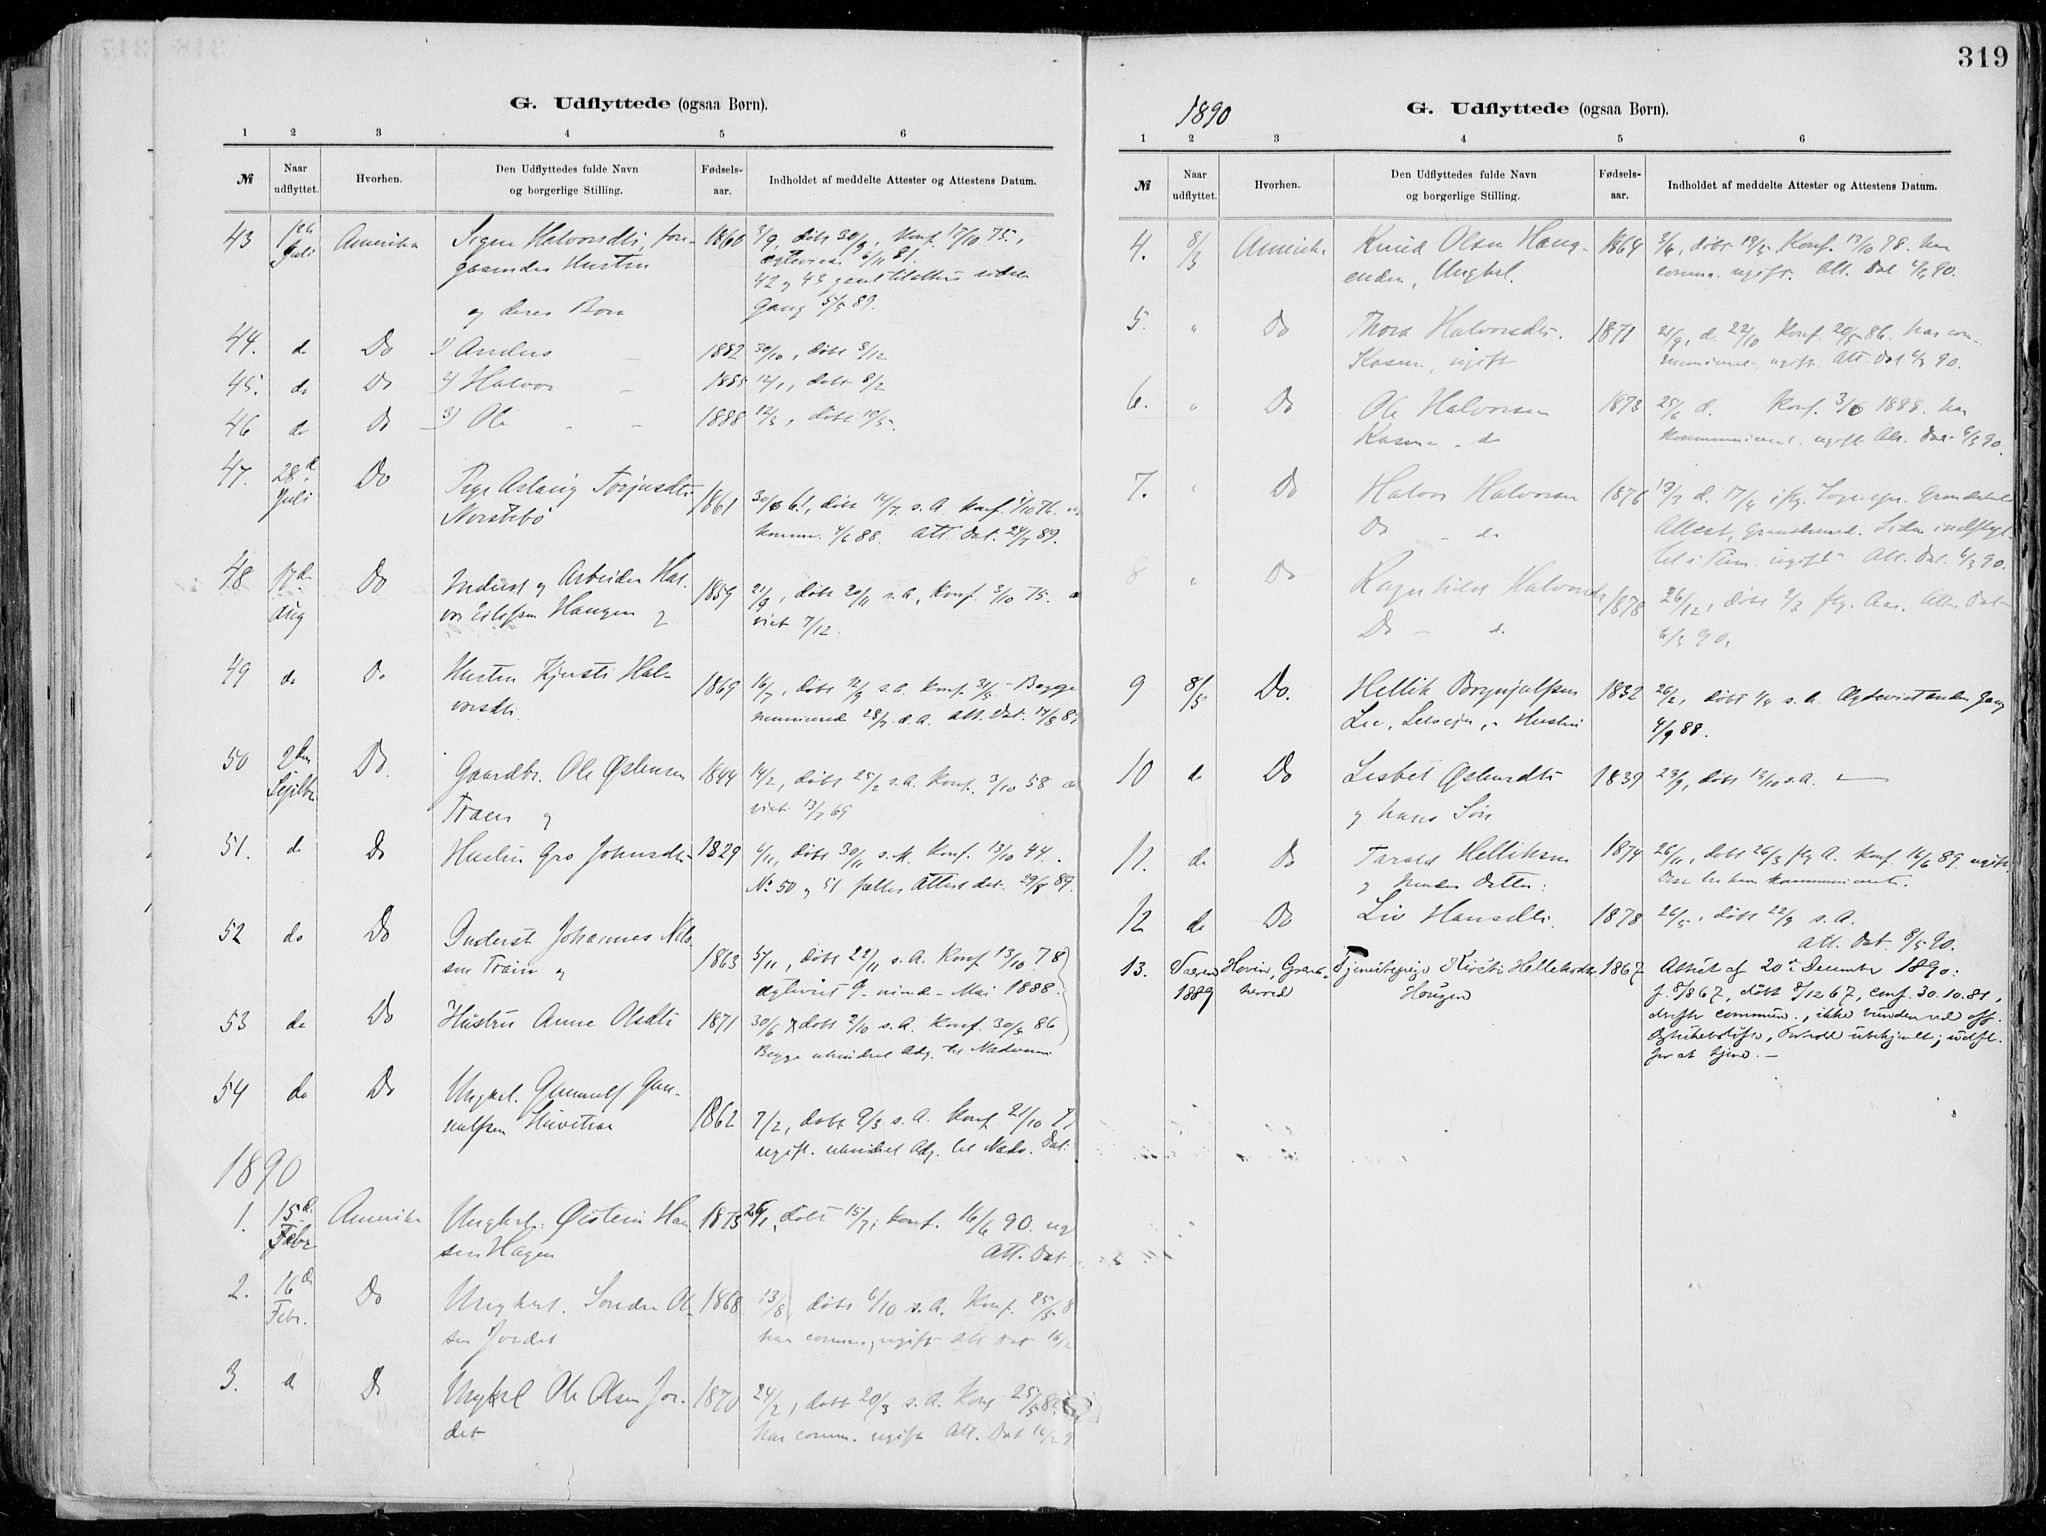 319
G. Udflyttede (ogsaa Børn).
1 2 3 4 5 6
№ Naar udflyttet. Hvorhen. Den Udflyttedes fulde Navn og borgerlige Stilling. Fødsels-aar. Indholdet af meddelte Attester og Attestens Datum.
43 Juli Amerika Signe Halvorsdtr, for- 1860 døbt 30/9, Konf. 17/10 75.,
gaaendes Hustru
42 og 43
og deres Born Gang 5/5 89.
44. do Do 1) Anders 1882 30/10, døbt 3/12
45. do Do 2) Halvor 1885 12/1, døbt 8/2
46 do Do 3) Ole 1888 12/3, døbt 10/5.
47. 28d Juli Do Pige Aslaug Torjusdtr 1861 døbt 14/7 s. A. Konf. 1/10 76.
Norstebø komm. 4/6 88. Att. Dat. 24/7 89.
48 17de Aug Do Inderst og Arbeider Hal- 1859 21/9, døbt 20/11 s. A, Konf. 3/10 75.
vor Eilefsen Haugen og viet 7/12.
49 do Do Hustru Kjersti Hal- 1869 16/7, døbt 12/9 s. A. Konf. 31/5 - Begge
vorsdtr. 28/7 d. A. Att. Dat.
50 2den Septbr Do. Gaardbr. Ole Østensen 1844 14/2, døbt 25/2 s. A. Konf. 3/10 58
Traen og viet 13/7 69
51. do Do Hustru Gro Johnsdtr 1829 døbt 30/11 s. A. Konf. 13/10 44.
No 50 og 51 fælles Attest dat. 29/8 89.
52 do Do Inderst Johannes Nils- 1863 5/11, døbt 22/11 s. A. Konf 13/10 78
sen Traen og Mai 1888.
53 do Do Hustru Anne Olsdtr 1871 30/6 døbt 2/10 s. A. Konf. 30/5 86
Begge uhindret Adg. til Nadveren
54 do Do Ungkrl. Gunnulf Gun- 1862 7/2, døbt 9/3 s. A. Konf 21/10 77
nulfsen ugift. uhindret Adg. til Nadv. Dat.
1890
1. 15de Febr Amerika Ungkrl. Øistein Han- 1875 døbt 15/7, Konf. 16/6 90. ug
sen Hagen Att. Dat.
2. 16de Febr. Do Ungkrl. Sondre Ol- 1868 13/8 døbt 6/10 s. A. Konf. 25/5 8
sen Jordet har comm., ugift Att Dat 16/2
3. d Do Ungkrl Ole Olsen Jor- 1870 24/2, døbt 20/3 s. A. Konf 25/5 8
det har comm. ugift Att. Dat 16/2 9
1890
G. Udflyttede (ogsaa Børn).
1 2 3 4 5 6
№ Naar udflyttet. Hvorhen. Den Udflyttedes fulde Navn og borgerlige Stilling. Fødsels-aar. Indholdet af meddelte Attester og Attestens Datum.
4. 8/3 Amerika Knud Olsen Haug- 1864 døbt 19/5. Konf. 13/10 78. har
enden, Ungkrl. comm. ugift. Att. Dat 6/3 90.
5. " Do Thora Halvorsdtr. 1871 21/9, d. 22/10 Konf. 20/5 86. har com-
Kasin, ugift municeret, ugift. Att. Dat 6/3 90.
6. " Do Ole Halvorsen 1873 25/6 d. Konf. 3/6 1888. har
Kasin - do kommuniceret. ugift. Att. Dat. 6/3 90.
7. " Do Halvor Halvorsen 1876 d. 17/4
Do - do Attest, Gransherred. Siden indflyt-
tet i Tinn. ugift Att. Dat. 6/3 90.
8 " Do Ragnhild Halvorsdtr 1878 26/12, døbt 2/3 flg. Aar. Att. Dat
Do - do 6/3 90.
9 8/5 Do. Hellik Brynjulfsen 1832 26/2, døbt 1/4 s. A. Ægteviet anden Gang
Hustru 4/9 88.
10 do Do Lisbet Østensdtr 1839 døbt 13/10 s. A.
og hans Søn
11. do Do Tarald Helliksen 1874 26/11, døbt 26/3 flg A. Konf. 16/6 89 ugift.
og hendes Datter: kommuniceret.
12 do Do Liv Hansdtr. 1878 26/5, døbt 22/9 s. A.
Att. Dat. 8/5 90.
13. 1889 Hovin, Grans- Tjenestepige Kirsti Helleiksdtr 1867 Attest af 20de December 1890:
herred Haugen f. 8/8 67, døbt 8/12 67, conf. 30.10.81,
derefter commun., ikke bunden ved off.
Forhold ubekjendt; udfl.
for at tjene. -